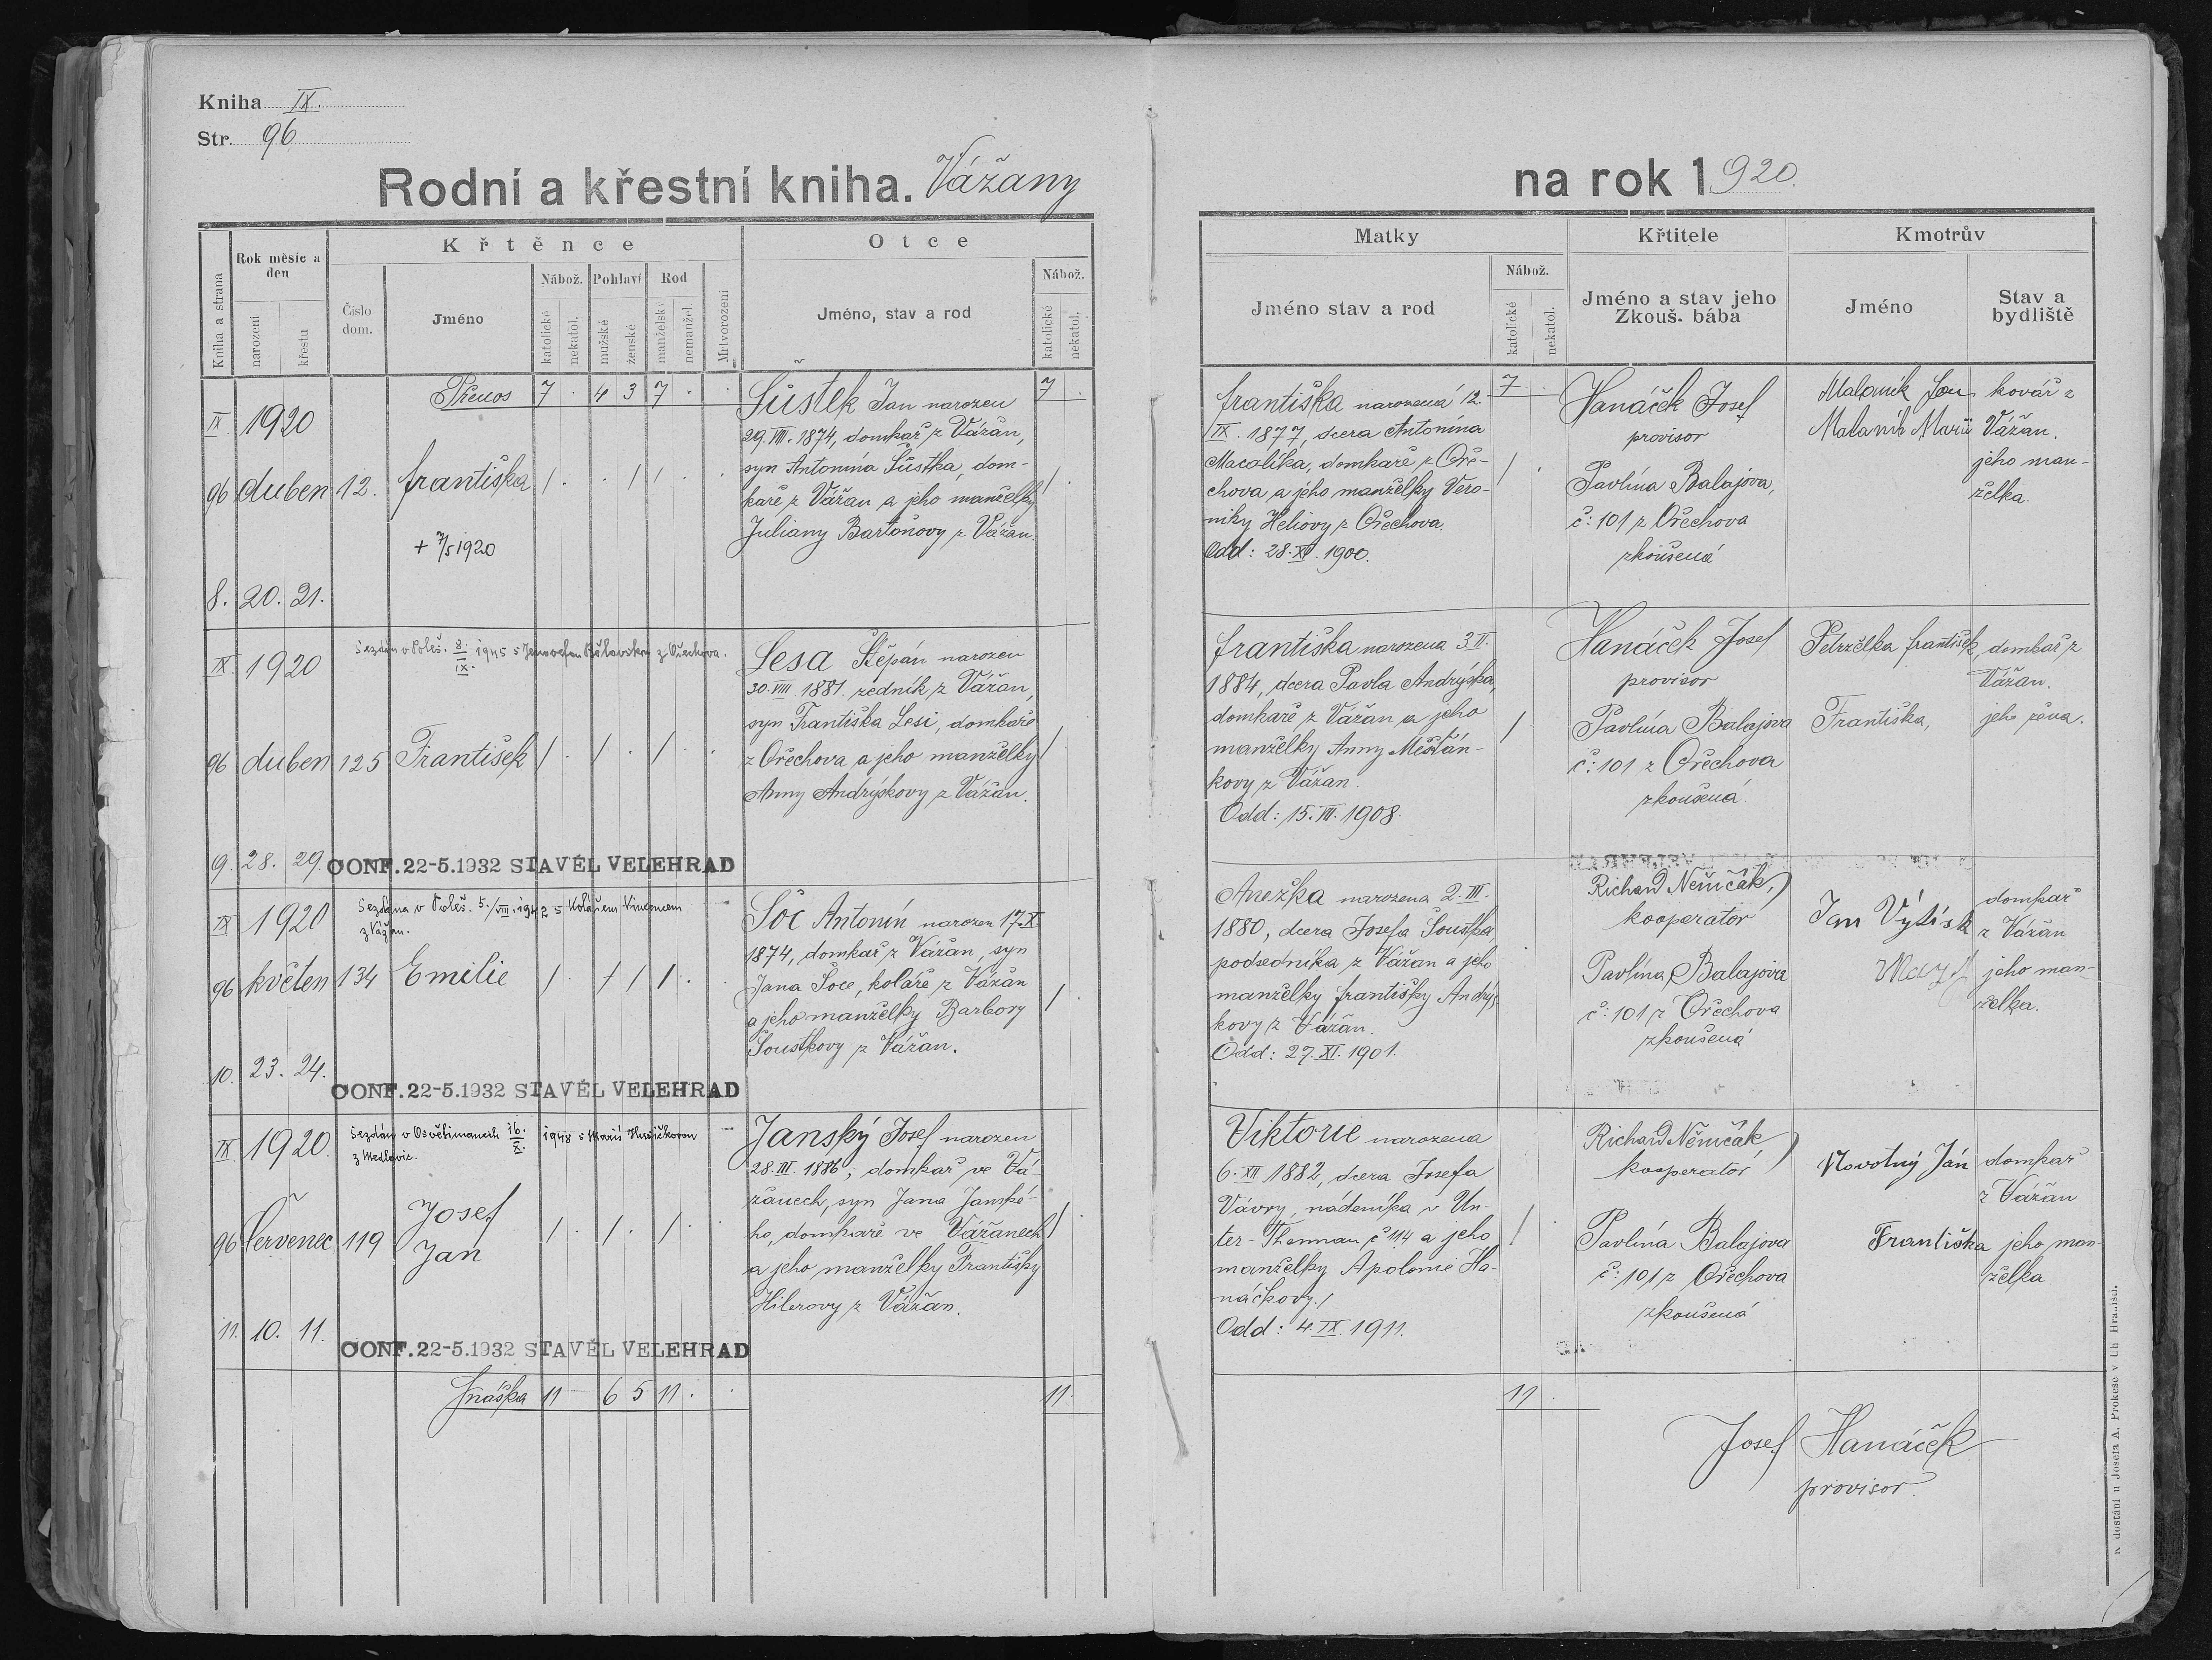 Kniha IX.
Str. 96
Rodní a křestní kniha. Vážany
Kniha a strana
Rok měsíc a den
narození
křestu
Křtěnce
Číslo dom.
Jméno
Nábož.
katolické
nekatol.
Pohlaví
mužské
ženské
Rod
manželský
nemanžel.
Mrtvorození
Otce
Jméno, stav a rod
Nábož.
katolické
nekatol.
Přenos 7 . 4 3 7 . . 7 .
IX 1920
96 duben 12. Františka / . . / / . . / .
+ 7/5 1920
8. 20. 21.
Šůstek Jan narozen
29. VIII. 1874, domkař z Vážan,
syn Antonína Šůstka, dom-
kaře z Vážan a jeho manželky
Juliany Bartoňovy z Vážan.
IX. 1920
Sezdán v Poleš. 8./IX. 1945 s z Ořechova.
96 duben 125 František / . / . / . . / .
9. 28. 29.
CONF. 22-5.1932 STAVĚL VELEHRAD
Lesa Štěpán narozen
30. VIII. 1881. řezník z Vážan,
syn Františka Lesi, domkáře
z Ořechova a jeho manželky
Anny Andrýskovy z Vážan.
IX 1920
Sezdána v Poleš. 5./VIII. 1942 s Kolářem Vincencem
z Vážan.
96 květen 134 Emilie / . / / / . . / .
10. 23. 24.
CONF. 22-5.1932 STAVĚL VELEHRAD
Šoc Antonín narozen 17. X.
1874, domkař z Vážan, syn
Jana Šoce, koláře z Vážan
a jeho manželky Barbory
Šoustkovy z Vážan.
IX. 1920.
Sezdán v Osvětimanech 16./XI. 1948 s Marií Husičkovou
z Medlovic.
96 Červenec 119 Josef
Jan / . / . / . / .
11. 10. 11.
CONF. 22-5.1932 STAVĚL VELEHRAD
Janský Josef narozen
28. III. 1886, domkař ve Vá-
žanech, syn Jana Janské-
ho, domkaře ve Vážanech
a jeho manželky Františky
Hilerovy z Vážan.
Snáška 11 6 5 11 . . 11.
na rok 1920.
Matky
Jméno stav a rod
Nábož.
katolické
nekatol.
Křtitele
Jméno a stav jeho
Zkouš. bába
Kmotrův
Jméno
Stav a bydliště
7 .
Františka narozená 12.
IX. 1877, dcera Antonína
Macalíka, domkaře z Oře-
chova a jeho manželky Vero-
niky Heliovy z Ořechova.
Odd: 28. XI. 1900.
/ .
Hanáček Josef
provisor
Pavlína Balajova,
č: 101 z Ořechova
zkoušená
Malaník Jan kovář z
Malaník Marie Vážan.
jeho man-
želka.
Františka narozena 3. II.
1884, dcera Pavla Andrýska,
domkaře z Vážan a jeho
manželky Anny Měšťán-
kovy z Vážan.
Odd: 15. III. 1908.
/
Hanáček Josef
provisor
Pavlína Balajova
č: 101 z Ořechova
zkoušená.
Petrželka František, domkař z
Vážan.
Františka, jeho žena.
Anežka narozena 2. III.
1880, dcera Josefa Šoustka,
podsedníka z Vážan a jeho
manželky Františky Andrýs-
kovy z Vážan.
Odd: 27. XI. 1901.
Richard Němčák,
kooperátor
Pavlína Balajova
č: 101 z Ořechova
zkoušená
Jan Výtisk
domkař
z Vážan
jeho man-
želka.
Viktorie narozena
6. XII 1882, dcera Josefa
Vávry, nádeníka v Un-
ter-Thennau č 114 a jeho
manželky Apolonie Ha-
náčkovy.
Odd: 4. IX. 1911.
/ .
Richard Němčák
kooperátor
Pavlína Balajova
č: 101 z Ořechova
zkoušená
Novotný Ján domkař
z Vážan
Františka jeho man-
želka
11 .
Josef Hanáček
provisor.
K dostání u Josefa A. Prokeše v Uh. Hradišti.